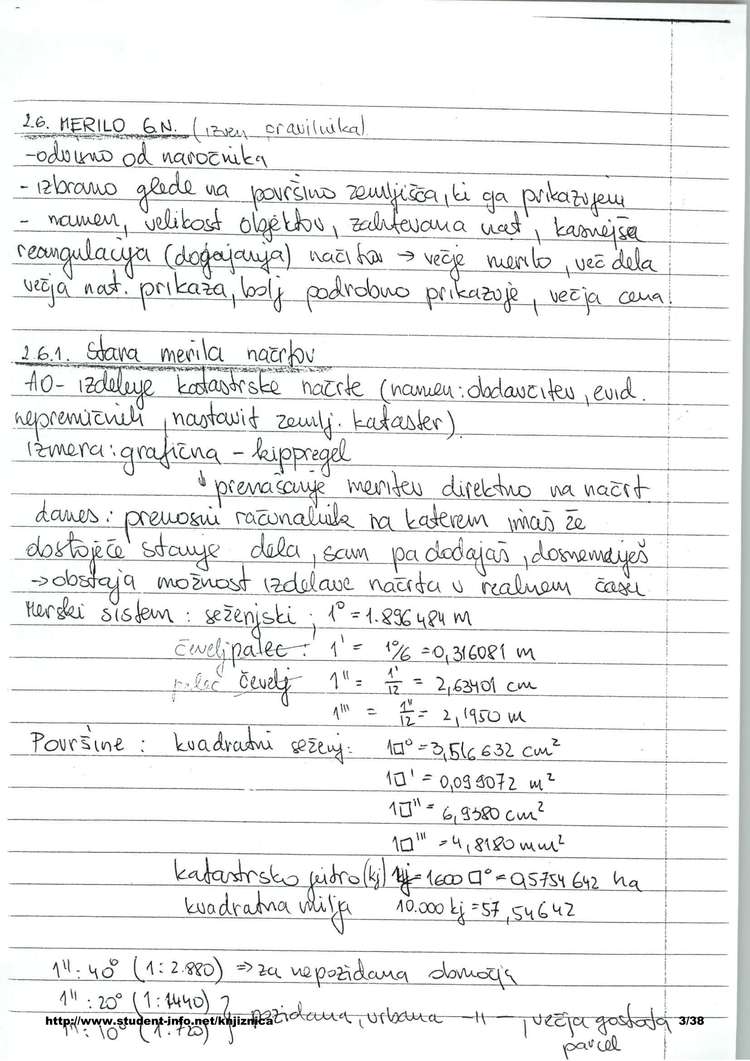 2.6. MERILO G.N. (izven pravilnika)
-odvisno od naročnika
- izbrano glede na površino zemljišča, ki ga prikazujem
- namen, velikost objektov, zahtevana nat, kasnejša
reangulacija (dogajanja) načrtov → večje merilo, več dela
večja nat. prikaza, bolj podrobno prikazuje, večja cena.
2.6.1. Stara merila načrtov
AO- izdeluje katastrske načrte (namen: obdavčitev, evid.
nepremičnin, nastavit zemlj. kataster).
izmera: grafična - kippregel
↓ prenašanje meritev direktno na načrt
danes: prenosni računalnik na katerem imaš že
obstoječe stanje dela, sam pa dodajaš, dosnemavješ
→ obstaja možnost izdelave načrta v realnem času
Merski sistem: seženjski; 1° = 1.896484 m
čevelj palec: 1' = 1°/6 = 0,316081 m
palec čevelj 1" = 1'/12 = 2,63401 cm
1''' = 1"/12 = 2,1950 m
Površine: kvadratni seženj: 1□° = 3,516632 cm²
1□' = 0,099072 m²
1□" = 6,9380 cm²
1□''' = 4,8180 mm²
katastrsko jutro (kj) 1kj = 1600 □° = 0,5754642 ha
kvadratna milja 10.000 kj = 57,54642
1": 40° (1:2.880) => za nepozidana območja
1": 20° (1:1440) }
1": 10° (1:720) } pozidana, urbana -11-, večja gostota
parcel
http://www.student-info.net/knjiznica 3/38